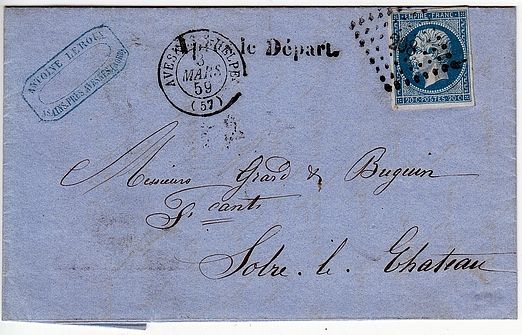 ANTOINE LEROUX
AVESNES-S-HELPE
3
MARS
59
(57)
le Départ.
EMPIRE FRANC
20C POSTES 20C
Messieurs Grard & Buguin
Fcants
Solre-le-Chateau